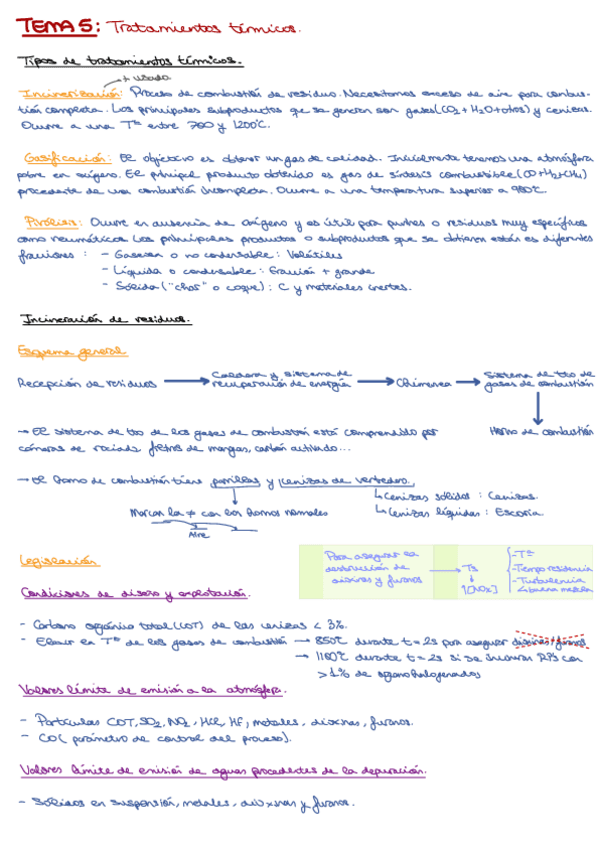 TEMA 5: Tratamientos térmicos.
Tipos de tratamientos térmicos.
+ usada
Incineración: Proceso de combustión de residuo. Necesitamos exceso de aire para combus-
tión completa. Los principales subproductos que se generan son gases (CO2 + H2O + otros) y cenizas.
Ocurre a una Tª entre 700 y 1200°C.
Gasificación: El objetivo es obtener un gas de calidad. Inicialmente tenemos una atmósfera
pobre en oxígeno. El principal producto obtenido es gas de síntesis combustible (CO + H2 + CH4)
procedente de una combustión incompleta. Ocurre a una temperatura superior a 900°C.
Pirólisis: Ocurre en ausencia de oxígeno y es útil para purines o residuos muy específicos
como neumáticos. Los principales productos o subproductos que se obtienen están es diferentes
fracciones : - Gaseosa o no condensable: Volátiles
- Líquida o condensable: Fracción + grande
- Sólida ("char" o coque): C y materiales inertes.
Incineración de residuos.
Esquema general
Recepción de residuos → Caldera y sistema de recuperación de energía → Chimenea → Sistema de tto de gases de combustión
→ El sistema de tto de los gases de combustión está comprendido por
Horno de combustión
cámaras de rociado, filtros de mangas, carbón activado...
→ El horno de combustión tiene parrillas y cenizas de vertedero.
↳ Cenizas sólidas : Cenizas.
Marcan la ≠ con los hornos normales
↳ Cenizas líquidas : Escoria.
Aire
Legislación
Para asegurar la destrucción de dioxinas y furanos → T3
↓
↑[NOx]
- Tª
- Tiempo residencia
- Turbulencia
↳ buena mezcla
Condiciones de diseño y explotación.
- Carbono orgánico total (COT) de las cenizas < 3%.
- Elevar la Tª de los gases de combustión → 850°C durante t = 2s para asegurar dioxinas/furanos
→ 1100°C durante t = 2s si se incineran RPs con
> 1% de organohalogenados
Valores límite de emisión a la atmósfera.
- Partículas COT, SO2, NO2, HCl, HF, metales, dioxinas, furanos.
- CO (parámetro de control del proceso).
Valores límite de emisión de aguas procedentes de la depuración.
- Sólidos en suspensión, metales, dioxinas y furanos.